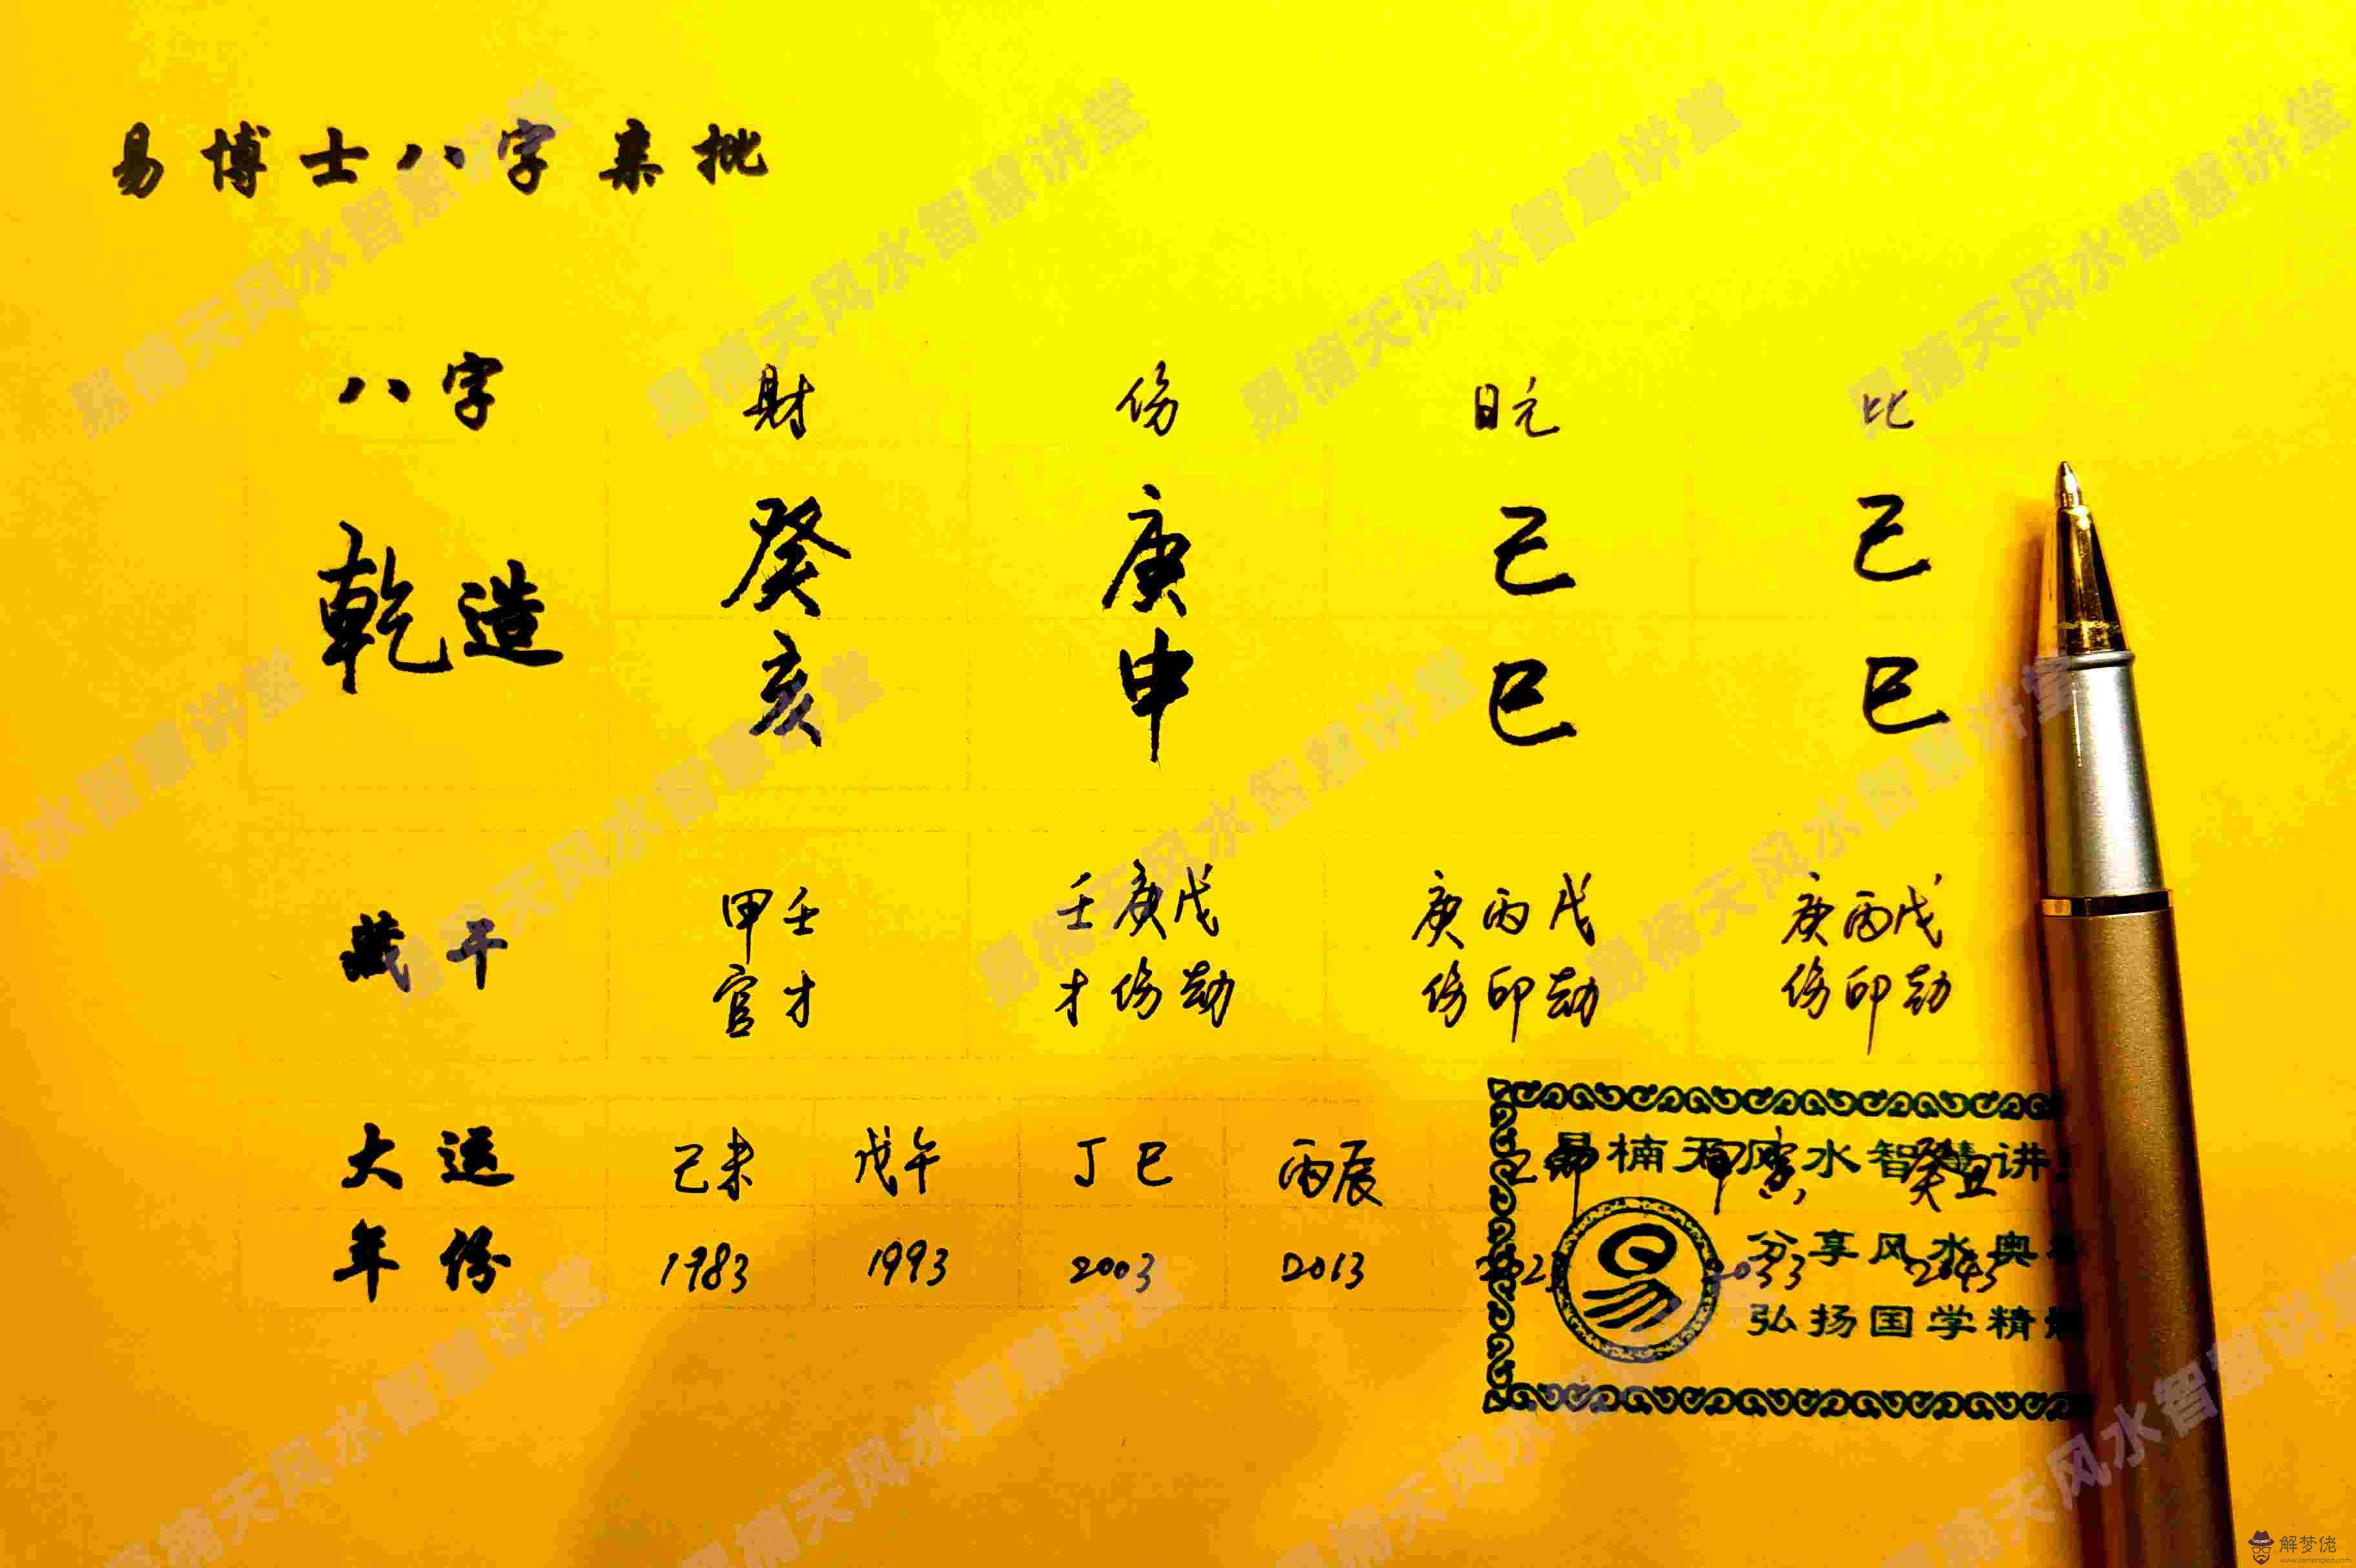 易博士八字亲批
八字 財 伤 日元 比
乾造 癸 庚 己 己
亥 申 巳 巳
藏干 甲壬 壬庚戊 庚丙戊 庚丙戊
官才 才伤劫 伤印劫 伤印劫
大运 己未 戊午 丁巳 丙辰 癸丑
年份 1983 1993 2003 2013 2033 2043
易楠天风水智慧讲
分享风水奥
弘扬国学精
易楠天风水智慧讲堂
解梦佬